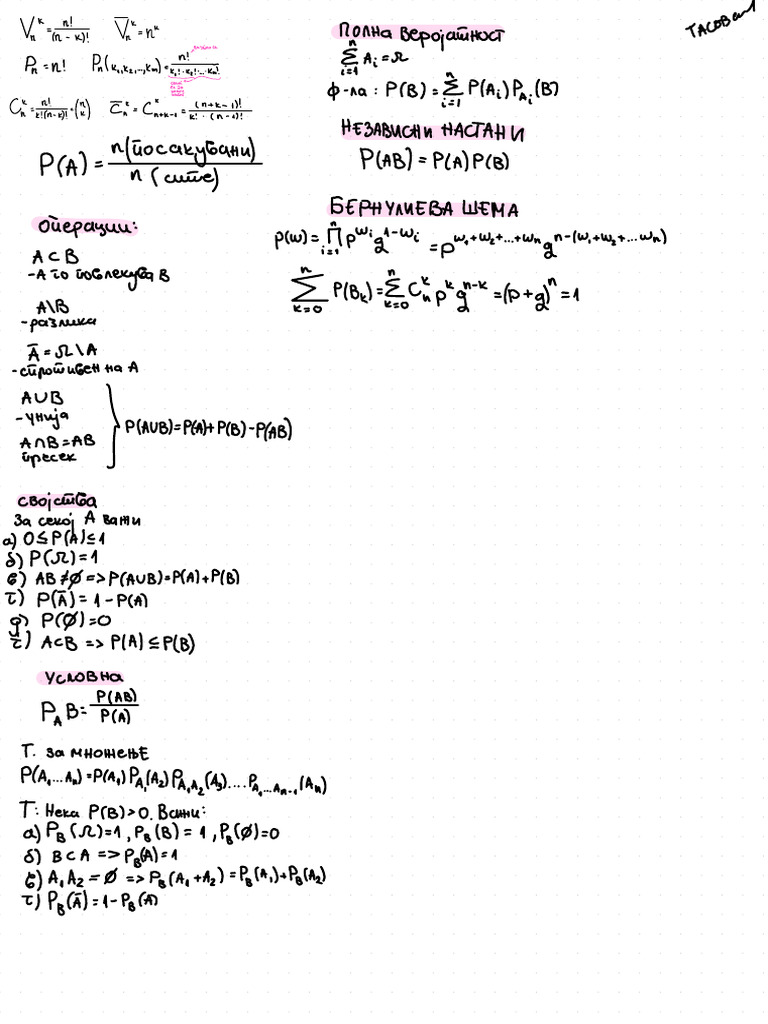 V_n^k = n!/(n-k)!   V̅_n^k = n^k
P_n = n!   P_n(k_1, k_2, ..., k_m) = n!/(k_1! · k_2! · ... · k_m!)
C_n^k = n!/(k!(n-k)!) = (n k)   C̅_n^k = C_{n+k-1}^k = (n+k-1)!/(k! · (n-1)!)
P(A) = n(посакувани)/n(сите)
операции:
A ⊂ B
- A го повлекува B
A\B
- разлика
A̅ = Ω \ A
- спротивен на A
A ∪ B
- унија
A ∩ B = AB
пресек
P(A∪B) = P(A) + P(B) - P(AB)
својства
За секој A важи
а) 0 ≤ P(A) ≤ 1
б) P(Ω) = 1
в) AB ≠ ∅ => P(A∪B) = P(A) + P(B)
г) P(A̅) = 1 - P(A)
д) P(∅) = 0
ѓ) A⊂B => P(A) ≤ P(B)
УСЛОВНА
P_A B = P(AB)/P(A)
Т. за множење
P(A_1...A_n) = P(A_1) P_{A_1}(A_2) P_{A_1A_2}(A_3) .... P_{A_1...A_{n-1}}(A_n)
Т: Нека P(B) > 0. Важи:
а) P_B(Ω) = 1, P_B(B) = 1, P_B(∅) = 0
б) B ⊂ A => P_B(A) = 1
в) A_1 A_2 = ∅ => P_B(A_1 + A_2) = P_B(A_1) + P_B(A_2)
г) P_B(A̅) = 1 - P_B(A)
ПОЛНА ВЕРОЈАТНОСТ
∑_{i=1}^n A_i = Ω
ф-ла: P(B) = ∑_{i=1}^n P(A_i) P_{A_i}(B)
НЕЗАВИСНИ НАСТАНИ
P(AB) = P(A) P(B)
БЕРНУЛИЕВА ШЕМА
p(w) = ∏_{i=1}^n p^{w_i} q^{1-w_i} = p^{w_1+w_2+...+w_n} q^{n-(w_1+w_2+...w_n)}
∑_{k=0}^n P(B_k) = ∑_{k=0}^n C_n^k p^k q^{n-k} = (p+q)^n = 1